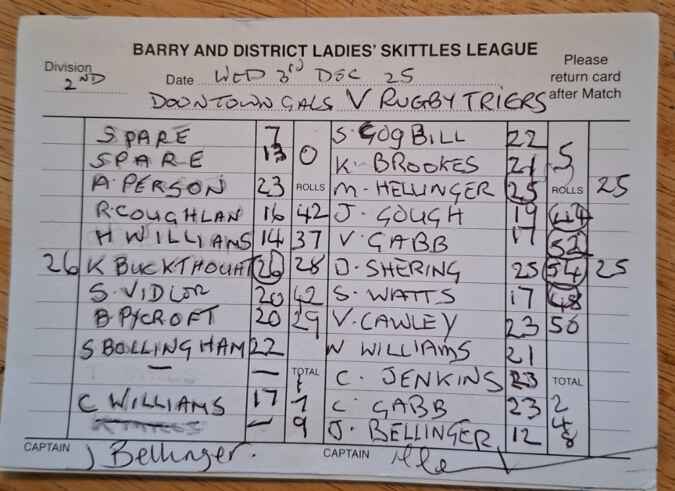 BARRY AND DISTRICT LADIES' SKITTLES LEAGUE
Division 2ND Date WED 3RD DEC 25 Please return card after Match
DOWNTOWN GALS V RUGBY TRIERS
SPARE 7 0 S. GOGBILL 22 5
SPARE 13 K. BROOKES 21
A. PERSON 23 ROLLS M. HELLINGER 25 ROLLS 25
R. COUGHLAN 16 42 J. GOUGH 19 44
H WILLIAMS 14 37 V. GABB 17 52
26 K BUCKTHOUAT 26 28 D. SHERING 25 54 25
S. VIDLOR 20 42 S. WATTS 17 48
B PYCROFT 20 29 V. CAWLEY 23 50
S BOLLINGHAM 22 N WILLIAMS 21
— — TOTAL C. JENKINS 23 TOTAL
C WILLIAMS 17 1 7 C. GABB 23 2
— 9 J. BELLINGER 12 4 8
CAPTAIN J Bellinger. CAPTAIN